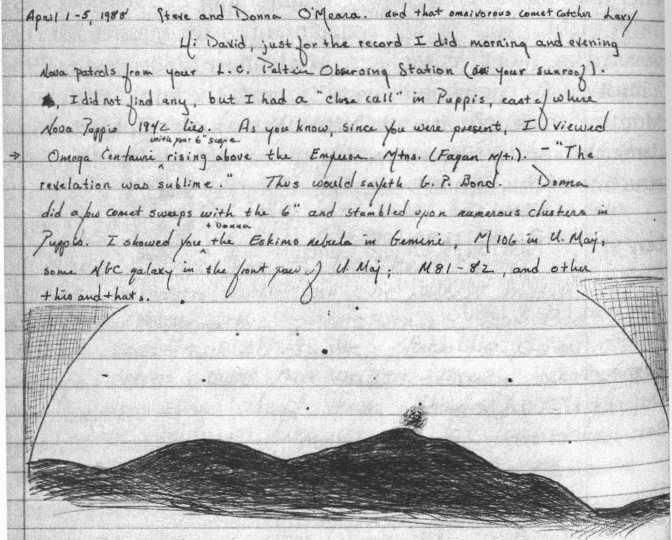 April 1-5, 1988 Steve and Donna O'Meara. and that omnivorous comet catcher Levy
Hi David, just for the record I did morning and evening
Nova patrols from your L.C. Peltier Observing Station ( your sunroof).
, I did not find any, but I had a "close call" in Puppis, east of where
Nova Puppis 1942 lies. As you know, since you were present, I viewed
with your 6" scope
→ Omega Centauri ^ rising above the Empson Mtns. (Fagan Mt.). - "The
revelation was sublime." Thus would sayeth G. P. Bond. Donna
did a few comet sweeps with the 6" and stumbled upon numerous clusters in
+ Donna
Puppis. I showed you ^ the Eskimo nebula in Gemini, M106 in U. Maj,
some NGC galaxy in the front paw of U. Maj; M81-82, and other
this and thats.